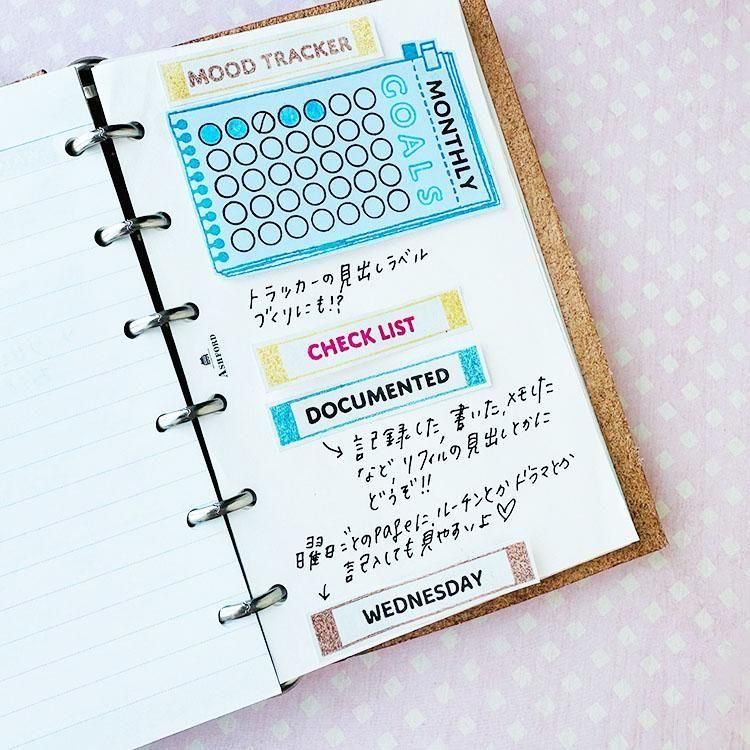 MOOD TRACKER
MONTHLY
GOALS
トラッカーの見出しラベル
づくりにも!?
CHECK LIST
ASHFORD
DOCUMENTED
記録した、書いた、メモした
など、リフィルの見出しとかに
どうぞ!!
曜日ごとのpageに、ルーチンとかドラマとか
記入しても見やすいよ♡
WEDNESDAY